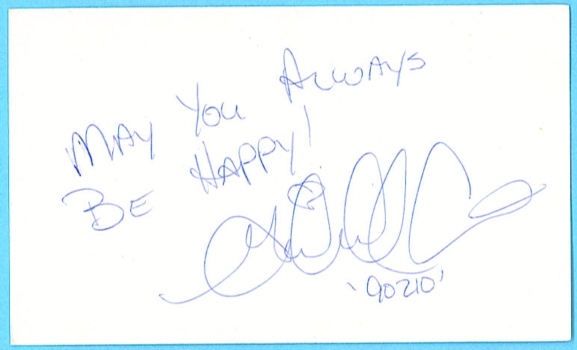 May You Always
Be Happy!
'90210'